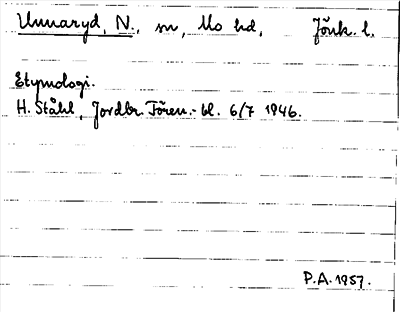 Unnaryd, N., sn, Mo hd, Jönk. l.
Etymologi.
H. Ståhl, Jordbr. Fören.-bl. 6/7 1946.
P.A. 1957.